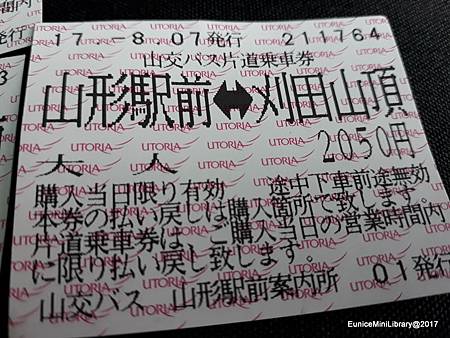 17 -8. 07発行 21,764
山交バス片道乗車券
山形駅前⬌刈田山頂
2050円
大 人
購入当日限り有効 途中下車前途無効
本券の払い戻しは購入箇所で致します。
片道乗車券は、ご購入当日の営業時間内
に限り払い戻し致します。
山交バス 山形駅前案内所 01発行
UTORIA
EuniceMiniLibrary@2017